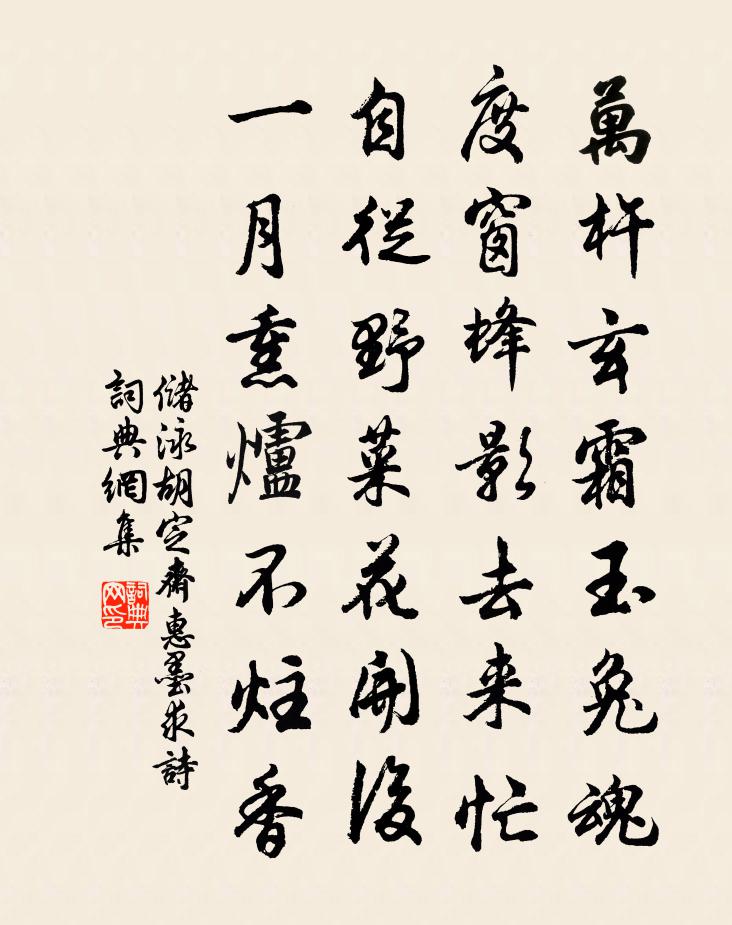 萬杵玄霜玉兔魂
度窗蜂影去来忙
自從野菜花開後
一月熏爐不炷香
儲泳胡定齋惠墨求詩
詞典網集
詞典网印